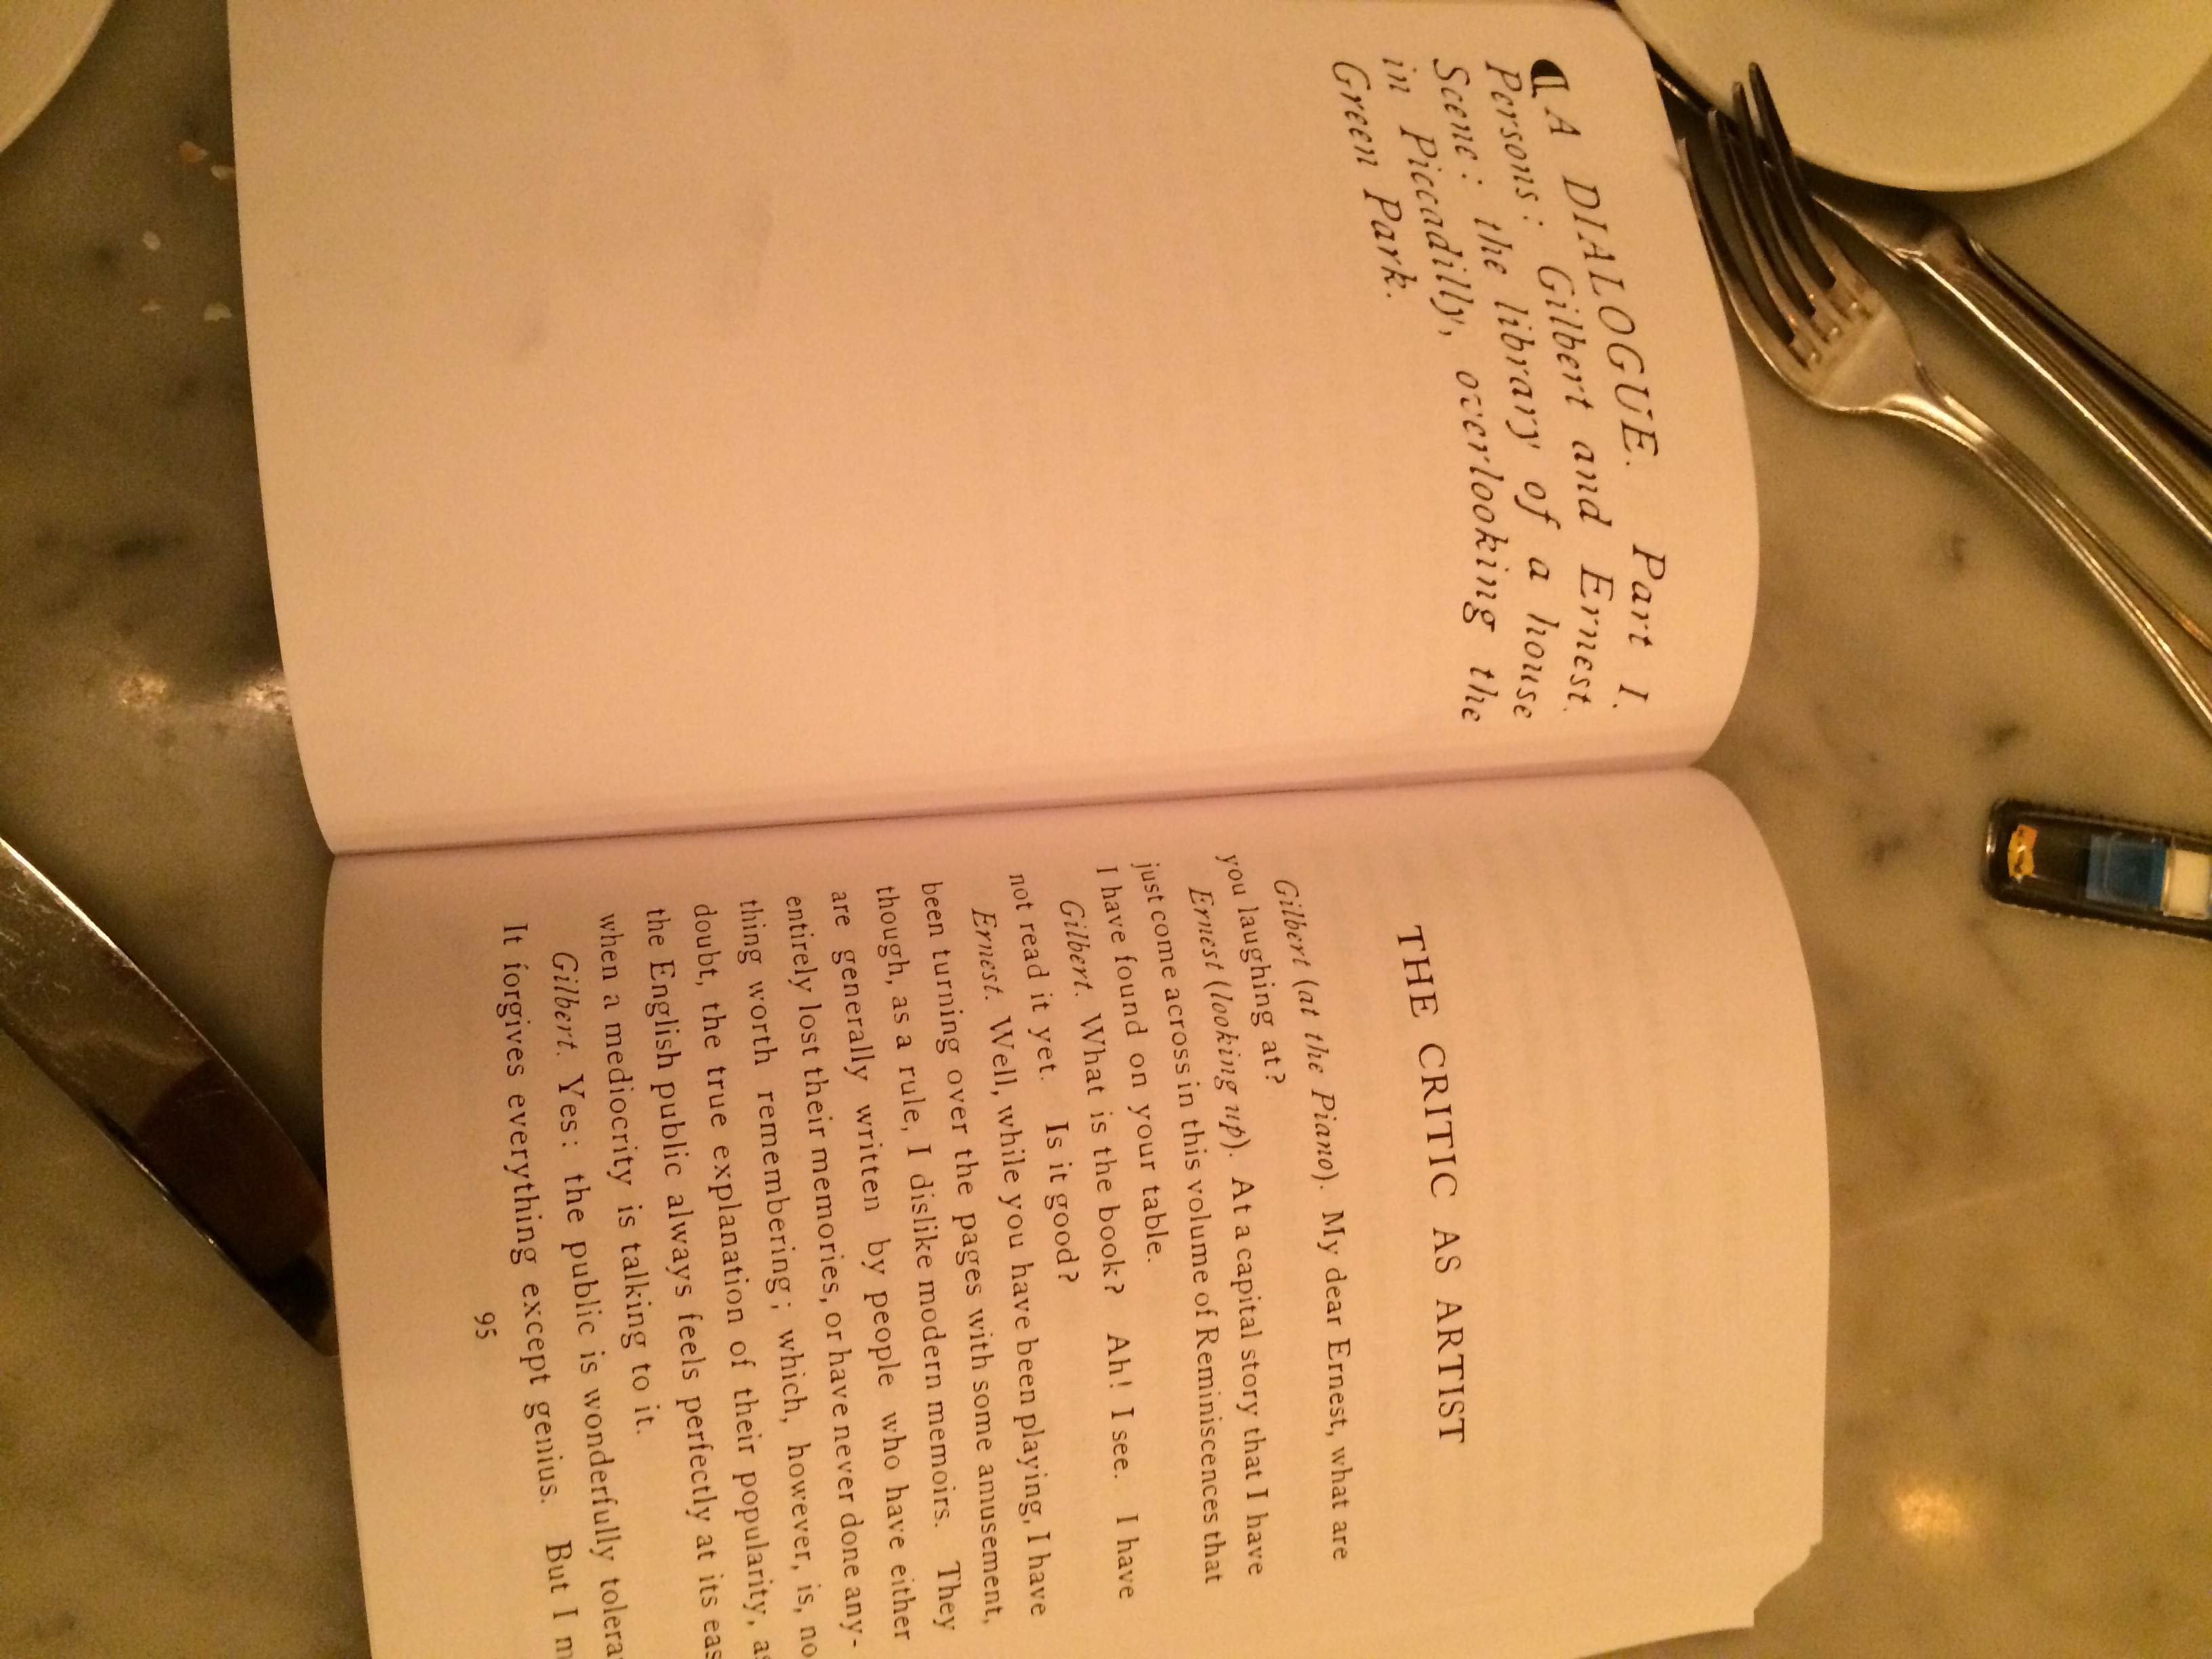 ¶ A DIALOGUE. Part I.
Persons: Gilbert and Ernest.
Scene: the library of a house
in Piccadilly, overlooking the
Green Park.
THE CRITIC AS ARTIST
Gilbert (at the Piano). My dear Ernest, what are
you laughing at?
Ernest (looking up). At a capital story that I have
just come across in this volume of Reminiscences that
I have found on your table.
Gilbert. What is the book? Ah! I see. I have
not read it yet. Is it good?
Ernest. Well, while you have been playing, I have
been turning over the pages with some amusement,
though, as a rule, I dislike modern memoirs. They
are generally written by people who have either
entirely lost their memories, or have never done any-
thing worth remembering; which, however, is, no
doubt, the true explanation of their popularity, as
the English public always feels perfectly at its
when a mediocrity is talking to it.
Gilbert. Yes: the public is wonderfully
It forgives everything except genius. But I
95